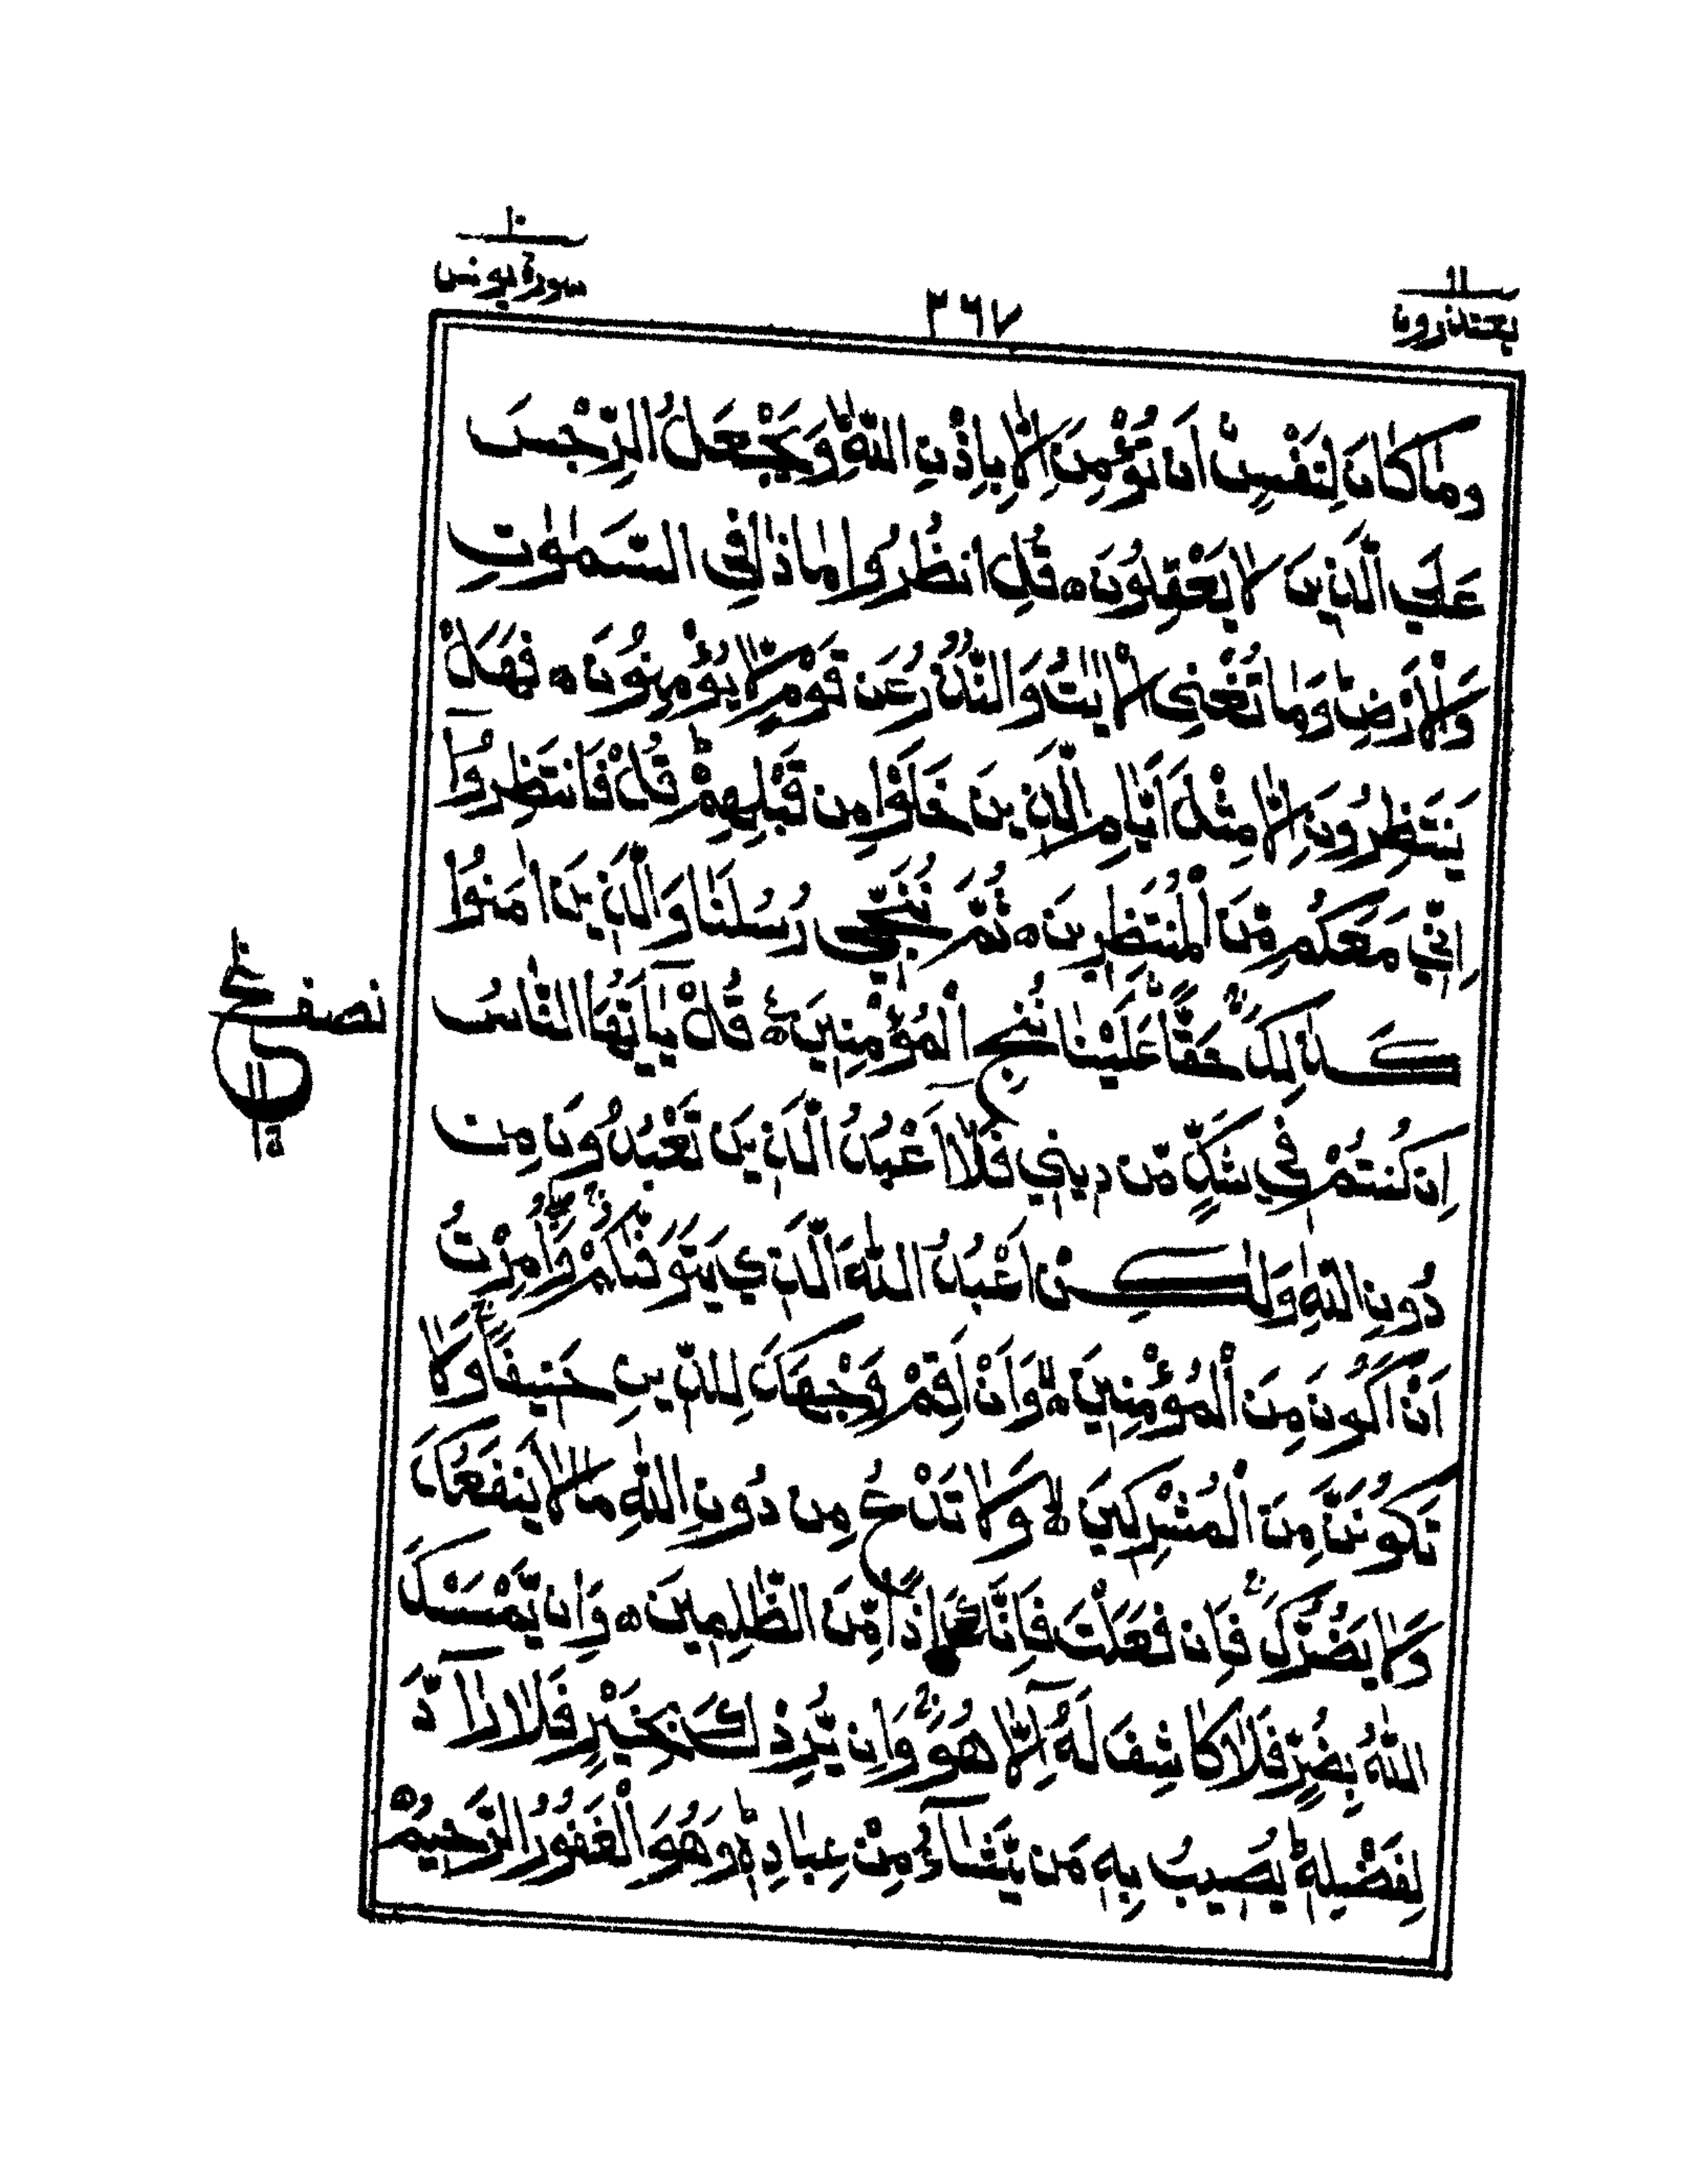 ١٠
سورة يونس
٣٦٧
١١
يعتذرون
وَمَا كَانَ لِنَفْسٍ اَنْ تُؤْمِنَ اِلَّا بِاِذْنِ اللّٰهِ ؕ وَيَجْعَلُ الرِّجْسَ
عَلَي الَّذِيْنَ لَا يَعْقِلُوْنَ ۝ قُلِ انْظُرُوْا مَاذَا فِي السَّمٰوٰتِ
وَالْاَرْضِ ؕ وَمَا تُغْنِي الْاٰيٰتُ وَالنُّذُرُ عَنْ قَوْمٍ لَّا يُؤْمِنُوْنَ ۝ فَهَلْ
يَنْتَظِرُوْنَ اِلَّا مِثْلَ اَيَّامِ الَّذِيْنَ خَلَوْا مِنْ قَبْلِهِمْ ؕ قُلْ فَانْتَظِرُوْٓا
اِنِّيْ مَعَكُمْ مِّنَ الْمُنْتَظِرِيْنَ ۝ ثُمَّ نُنَجِّيْ رُسُلَنَا وَالَّذِيْنَ اٰمَنُوْا
كَذٰلِكَ ۚ حَقًّا عَلَيْنَا نُنْجِ الْمُؤْمِنِيْنَ ۝ قُلْ يٰٓاَيُّهَا النَّاسُ
اِنْ كُنْتُمْ فِيْ شَكٍّ مِّنْ دِيْنِيْ فَلَآ اَعْبُدُ الَّذِيْنَ تَعْبُدُوْنَ مِنْ
دُوْنِ اللّٰهِ وَلٰكِنْ اَعْبُدُ اللّٰهَ الَّذِيْ يَتَوَفّٰىكُمْ ۖ وَاُمِرْتُ
اَنْ اَكُوْنَ مِنَ الْمُؤْمِنِيْنَ ۝ وَاَنْ اَقِمْ وَجْهَكَ لِلدِّيْنِ حَنِيْفًا ۚ وَلَا
تَكُوْنَنَّ مِنَ الْمُشْرِكِيْنَ ۝ وَلَا تَدْعُ مِنْ دُوْنِ اللّٰهِ مَا لَا يَنْفَعُكَ
وَلَا يَضُرُّكَ ۚ فَاِنْ فَعَلْتَ فَاِنَّكَ اِذًا مِّنَ الظّٰلِمِيْنَ ۝ وَاِنْ يَّمْسَسْكَ
اللّٰهُ بِضُرٍّ فَلَا كَاشِفَ لَهٗٓ اِلَّا هُوَ ۚ وَاِنْ يُّرِدْكَ بِخَيْرٍ فَلَا رَآدَّ
لِفَضْلِهٖ ؕ يُصِيْبُ بِهٖ مَنْ يَّشَآءُ مِنْ عِبَادِهٖ ؕ وَهُوَ الْغَفُوْرُ الرَّحِيْمُ ۝
نصف